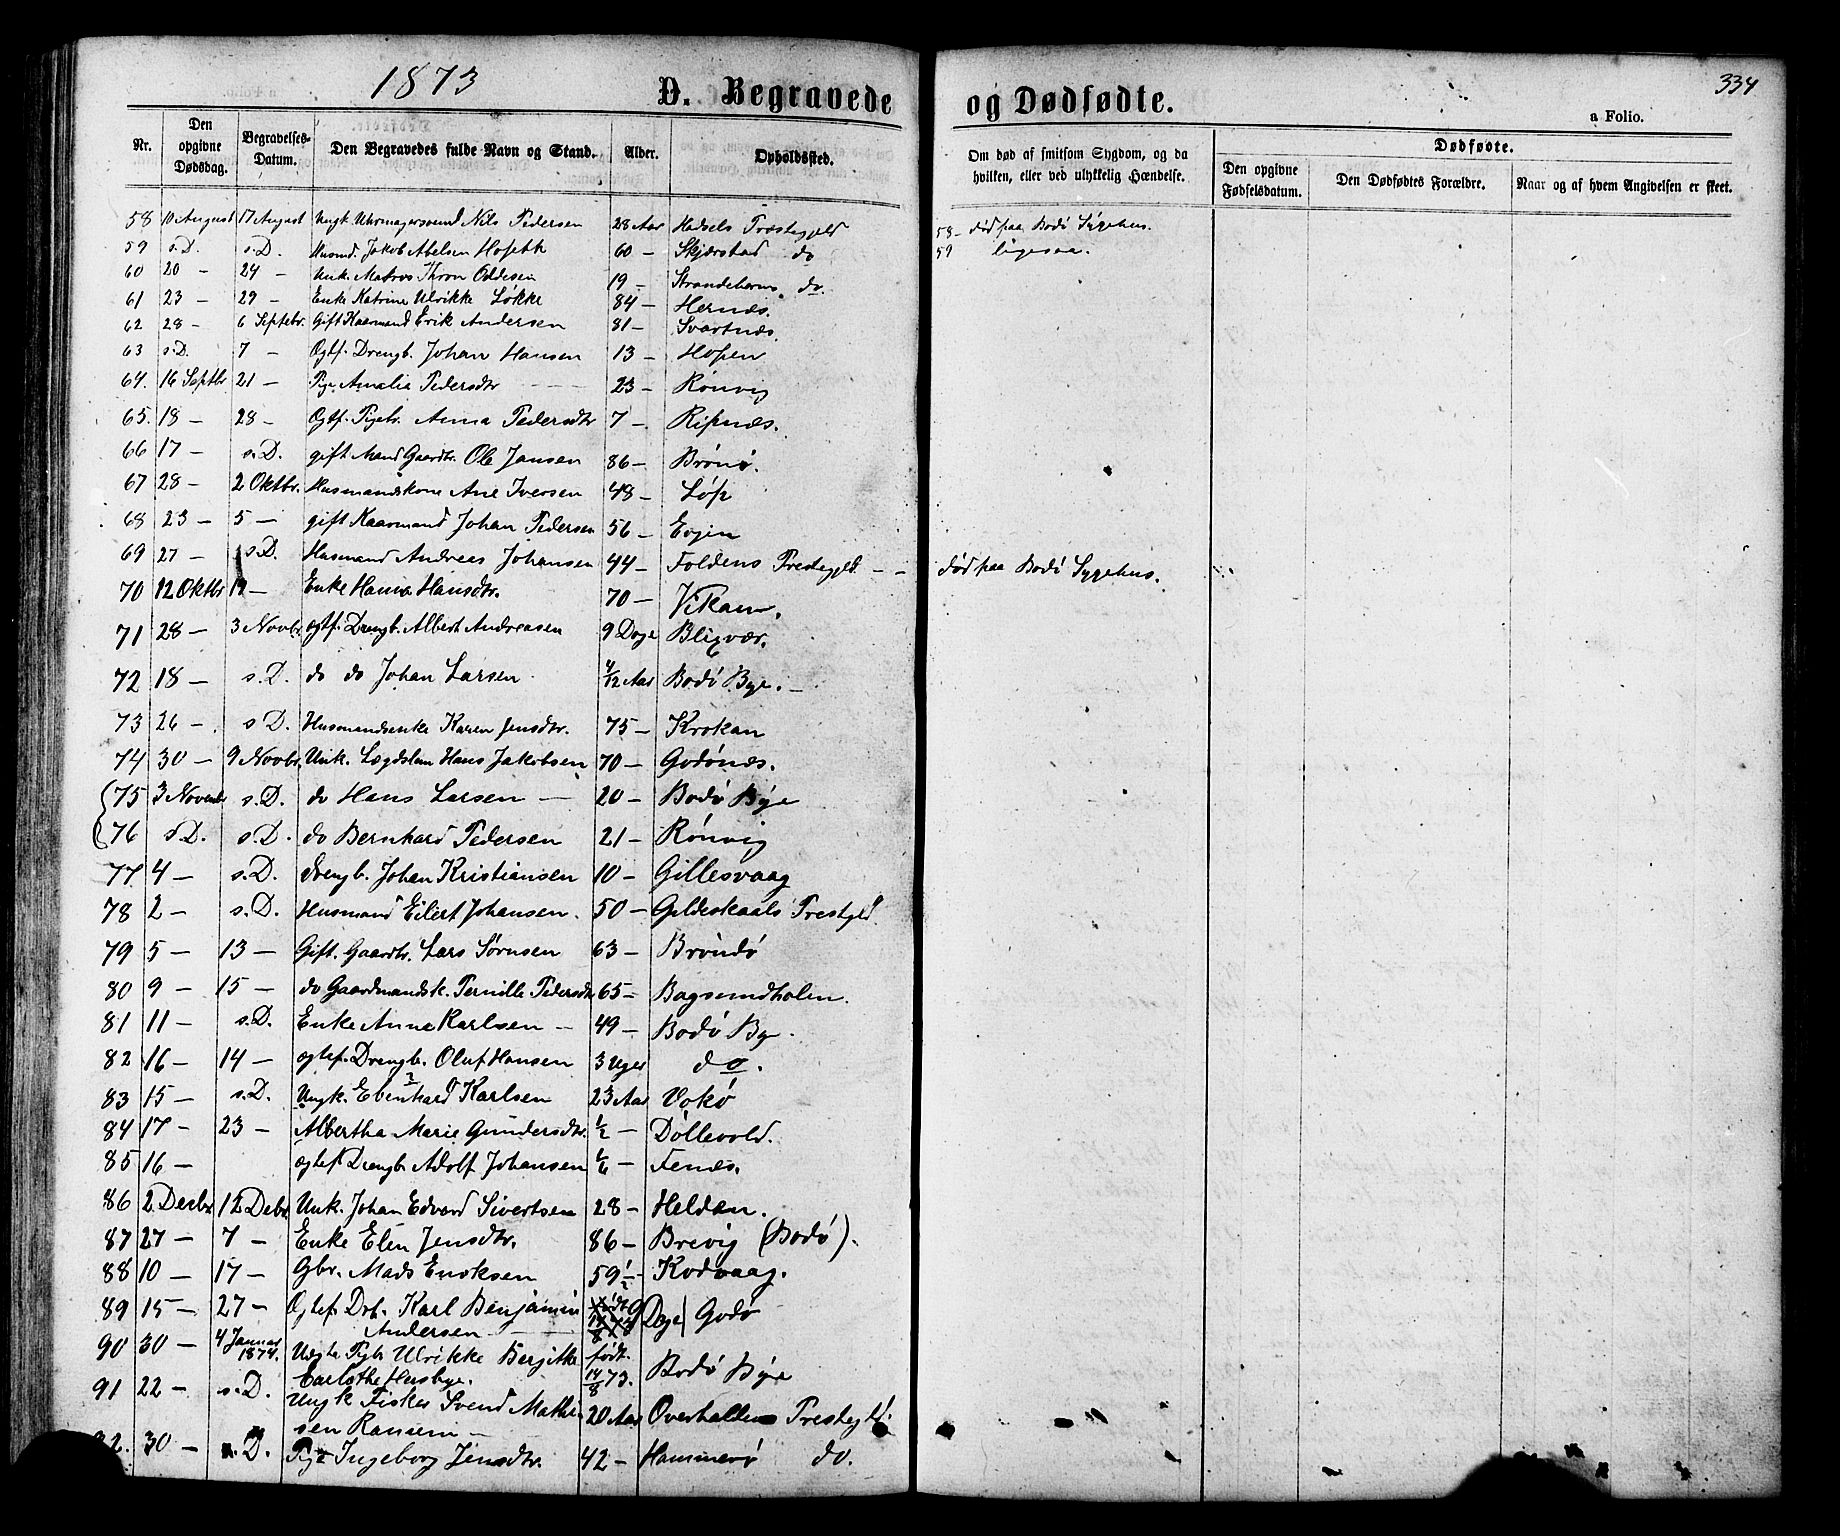 1873
D. Begravede og Dødfødte.
334
a Folio.
Nr. Den opgivne Dødsdag. Begravelses-Datum. Den Begravedes fulde Navn og Stand. Alder. Opholdssted. Om død af smitsom Sygdom, og da hvilken, eller ved ulykkelig Hændelse. Dødfødte. Den opgivne Fødselsdatum. Den Dødfødtes Forældre. Naar og af hvem Angivelsen er skeet.
58 10 August 17 August Ungk Uhrmagersvend Nils Pedersen 28 Aar Hadsels Præstegjeld 58- død paa Bodø Sygehus.
59 s.D. s.D. Husmd. Jakob Abelsen Hoseth 60 — Skjerstad do 59 ligesaa.
60 20 - 24 - Unk. Matros Thron Oddesen 19 — do.
61 23 - 29 - Enke Katrine Ulrikke Løkke 84 — Hernæs.
62 28 - 6 Septebr. Gift Kaarmand Erik Andersen 81 — Svartnæs.
63 s.D. 7 - Ogtf. Drengb. Johan Hansen 13 — Hopen
64. 16 Septbr 21 - Pige Amalia Pedersdtr 23 — Rønvig
65. 18 - 28 - Ogtf. Pigebr. Anna Pedersdtr 7 — Ripnæs.
66 17 - s.D. gift Mand Gaardbr. Ole Jansen 86 — Brønø.
67 28 - 2 Oktbr. Husmandskone Ane Iversen 48 — Løp
68 23 - 5 - gift Kaarmand Johan Pedersen 56 — Evjen
69 27 - s.D. Husmand Andreas Johansen 44 — Foldens Prestegjeld - - død paa Bodø Sygehus.
70 12 Oktbr 19 - Enke Hanna Hansdtr. 70 — Vikan.
71 28 - 3 Novbr ogtf. Drengb. Albert Andreasen 9 Dage Bligvær.
72 18 - s.D. do do Johan Larsen 4/12 Aar Bodø Bye. -
73 26 - s D. Husmandsenke Karen Jensdtr. 75 — Krokan
74 30 - 9 Novbr. Unk. Lægdslem Hans Jakobsen 70 — Godønæs.
75 3 Novembr s.D. do Hans Larsen — 20 — Bodø Bye
76 s D. s.D. do Bernhard Pedersen 21 — Rønvig
77 4 - s.D. drengb. Johan Kristiansen 10 — Gillesvaag
78 2 - s.D. Husmand Eilert Johansen. 50 — Gildeskaals Prestgjld.
79 5 - 13 - Gift. Gaardbr. Lars Sørnsen 63 — Brøndø
80 9 - 15 - do Gaardmandsk. Pernille Pedersdtr 65 — Bagsundholm.
81 11 - s.D. Enke Anne Karlsen — 49 — Bodø By.
82 16 - 14 - ogtef. Drengb. Oluf Hansen 3 Uger do.
83 15 - s.D. Ungk. Ebenhard Karlsen 23 Aar Vokø
84 17 - 23 - Albertha Marie Gundersdtr. 1/2 — Døllevold.
85 16 - ogtef Drengb Adolf Johansen 1/6 — Fenæs.
86 2 Decbr 12 Debr Unk. Johan Edvard Sivertsen 28 — Heldan.
87 27 - 7 - Enke Elen Jensdtr. 86 — Brevig (Bodø).
88 10 - 17 - Gbr. Mads Enoksen 59 1/2 — Kodvaag.
89 15 - 27 - Ogtef. Drb. Karl Benjamin Andersen 9 Dage Godø
90 30 - 4 Januar 1874. Uegte Pigb Ulrikke Bergitte født 14/8 73. Bodø Bye
91 22 - s.D. Ungk Fisker Svend Mathisen 20 Aar Overhallens Prestegjld.
92. 30 - s.D. Pige Ingeborg Jensdtr. 42 — Hammerø do.